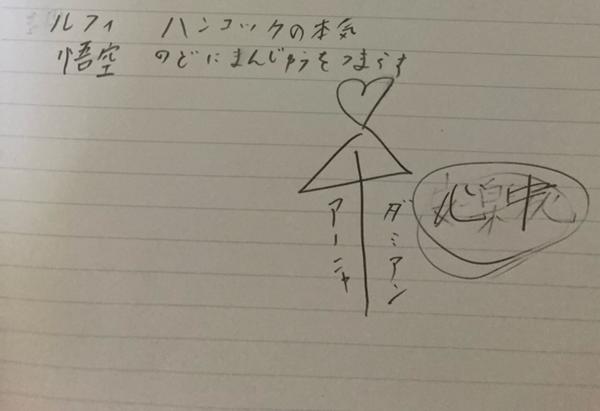 ルフィ ハンコックの本気
悟空 のどにまんじゅうをつまらす
アーニャ
ダミアン